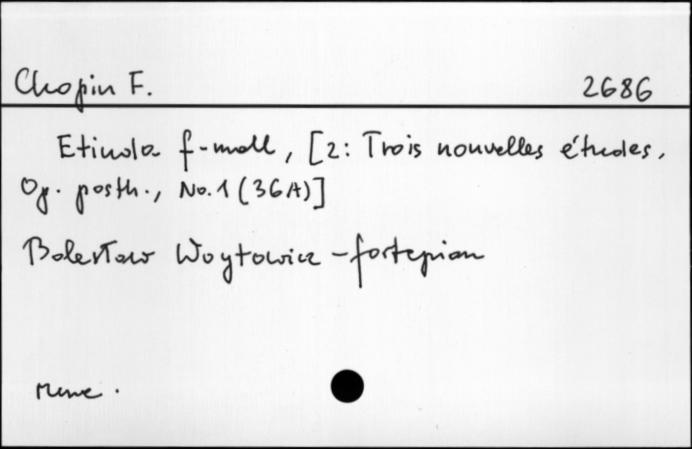 Chopin F. 2686
Etiuda f-moll, [z: Trois nouvelles études,
Op. posth., No. 1 (36A)]
Bolesław Woytowicz - fortepian